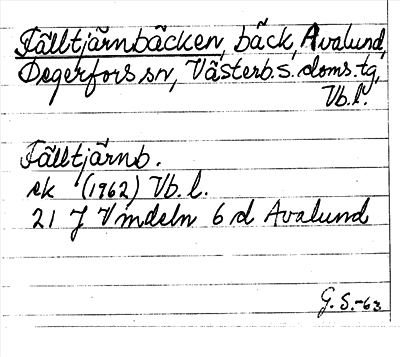 Fälltjärnbäcken, bäck, Avalund,
Degerfors sn, Västerb. s. doms. tg,
Vb. l.
Fälltjärnb.
ek (1962) Vb. l.
21 J Vindeln 6 d Avalund
G. S.-63